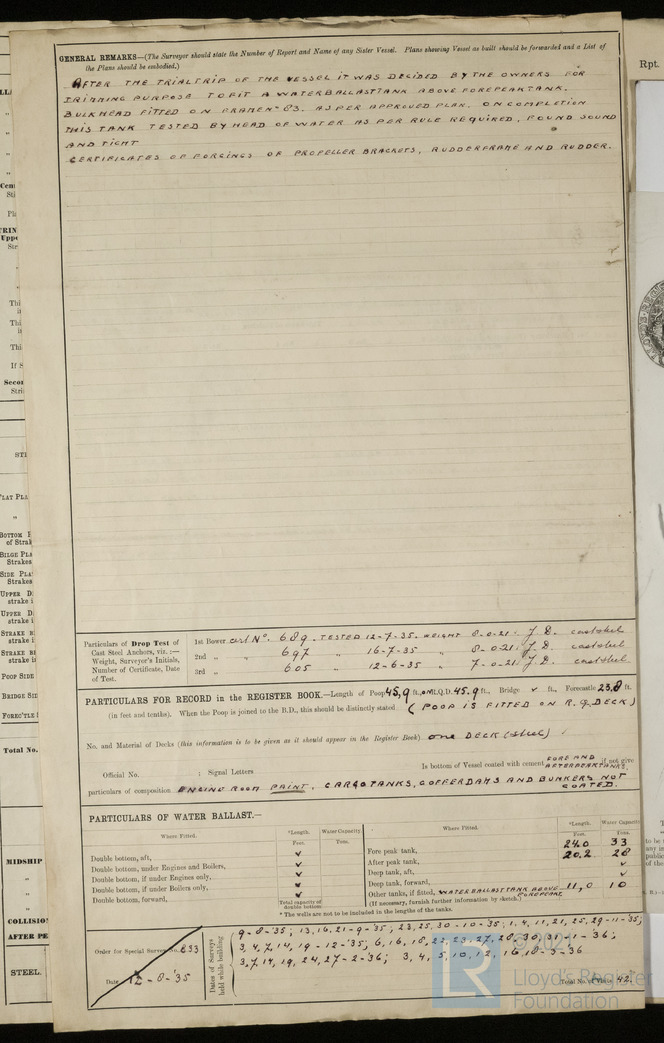 GENERAL REMARKS—(The Surveyor should state the Number of Report and Name of any Sister Vessel. Plans showing Vessel as built should be forwarded and a List of
the Plans should be embodied.)
AFTER THE TRIALTRIP OF THE VESSEL IT WAS DECIDED BY THE OWNERS FOR
TRIMMING PURPOSE TO FIT A WATERBALLASTTANK ABOVE FOREPEAKTANK.
BULKHEAD FITTED ON FRAME No 63. AS PER APPROVED PLAN. ON COMPLETION
THIS TANK TESTED BY HEAD OF WATER AS PER RULE REQUIRED, FOUND SOUND
AND TIGHT
CERTIFICATES OF FORGINGS OF PROPELLER BRACKETS, RUDDERFRAME AND RUDDER.
Particulars of Drop Test of
Cast Steel Anchors, viz. :—
Weight, Surveyor's Initials,
Number of Certificate, Date
of Test.
1st Bower cert No. 689 - TESTED 12-7-35. WEIGHT 8-0-21. J.D. caststeel
2nd „ „ 697 „ 16-7-35 „ 8-0-21. J.D. caststeel
3rd „ 605 „ 12-6-35 „ 7-0-21. J.D. caststeel
PARTICULARS FOR RECORD in the REGISTER BOOK.—Length of Poop 45,9 ft., or R.Q.D. 45.9 ft., Bridge ✓ ft., Forecastle 23,8 ft.
(in feet and tenths). When the Poop is joined to the B.D., this should be distinctly stated (POOP IS FITTED ON R.Q.DECK)
No. and Material of Decks (this information is to be given as it should appear in the Register Book) one DECK (steel)
Official No. ; Signal Letters Is bottom of Vessel coated with cement FORE AND AFTERPEAKTANKS, if not give
particulars of composition ENGINE ROOM PAINT, CARGOTANKS, COFFERDAMS AND BUNKERS NOT COATED.
PARTICULARS OF WATER BALLAST.—
Where Fitted. *Length. Water Capacity Where Fitted. *Length. Water Capacity
Feet. Tons. Feet. Tons.
Double bottom, aft, ✓ Fore peak tank, 24.0 33
Double bottom, under Engines and Boilers, ✓ After peak tank, 20.2 28
Double bottom, if under Engines only, ✓ Deep tank, aft, ✓
Double bottom, if under Boilers only, ✓ Deep tank, forward, ✓
Double bottom, forward, Total capacity of double bottom Other tanks, if fitted, WATERBALLASTTANK ABOVE FOREPEAK 11,0 10
(If necessary, furnish further information by sketch.)
* The wells are not to be included in the lengths of the tanks.
Order for Special Survey No. 633
Date 12-8-'35
Dates of Surveys held while building
9-8-'35; 13,16,21-9-35; 23,25,30-10-35; 1,4,11,21,25,29-11-35;
3,4,7,14,19-12-'35; 6,16,18,22,23,27,28,30,31-1-'36;
3,7,14,19,24,27-2-36; 3,4,5,10,12,16,18-3-36
Total No. of Visits 42.
© 2021
LR
Lloyd's Register
Foundation
Rpt.
Total No.
MIDSHIP
COLLISION
AFTER PE
STEEL.